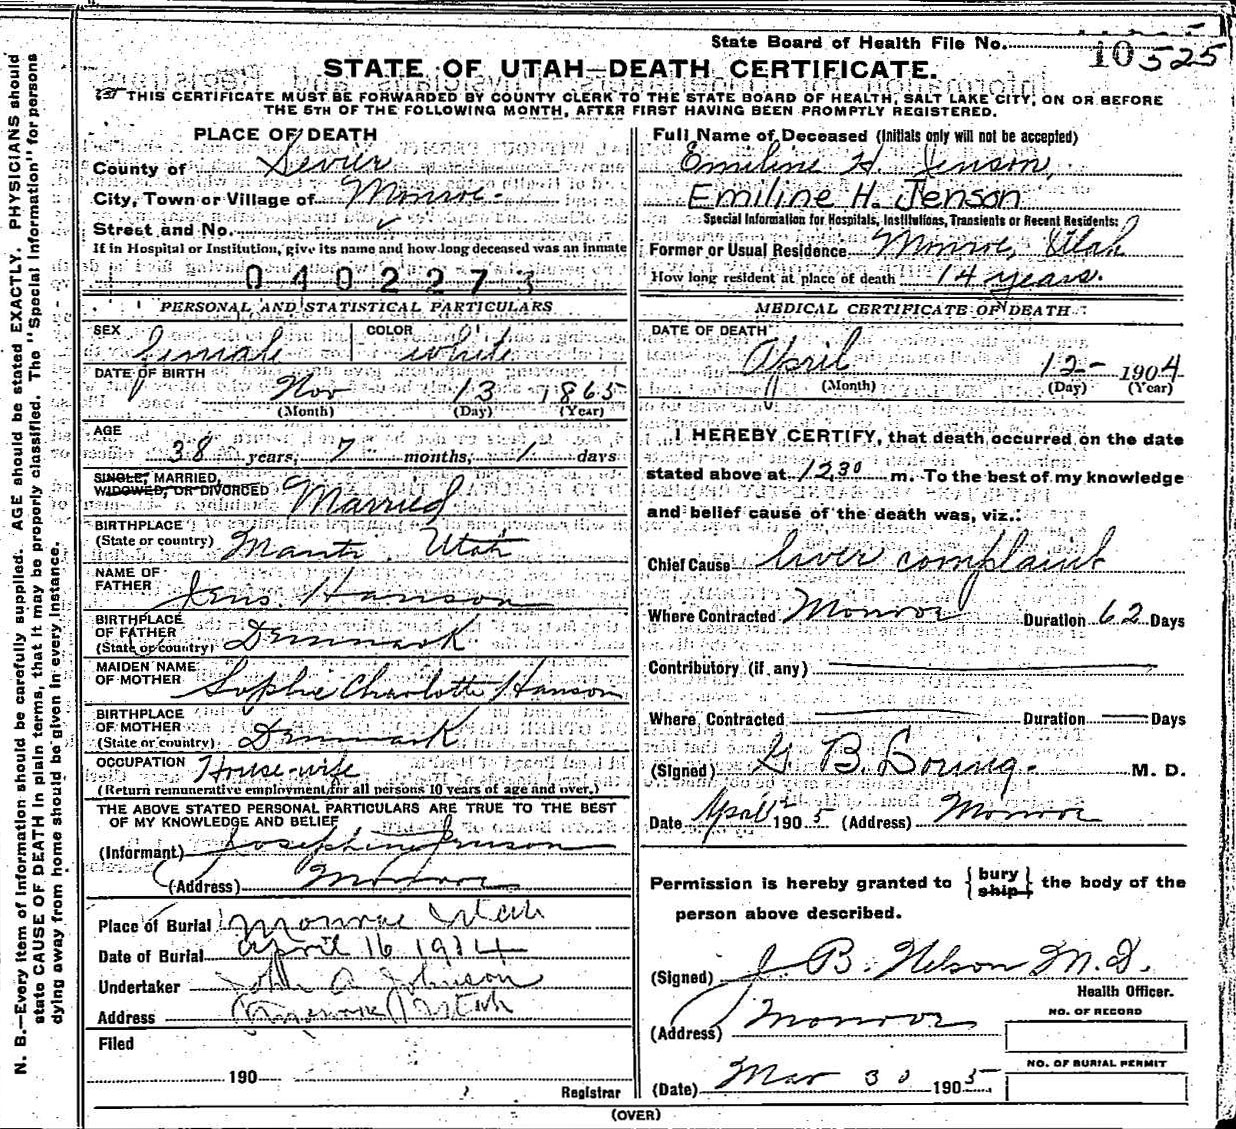 State Board of Health File No. 10525
STATE OF UTAH—DEATH CERTIFICATE.
THIS CERTIFICATE MUST BE FORWARDED BY COUNTY CLERK TO THE STATE BOARD OF HEALTH, SALT LAKE CITY, ON OR BEFORE
THE 5TH OF THE FOLLOWING MONTH, AFTER FIRST HAVING BEEN PROMPTLY REGISTERED.
PLACE OF DEATH
County of Sevier
City, Town or Village of Monroe.
Street and No.
If in Hospital or Institution, give its name and how long deceased was an inmate
0402273
PERSONAL AND STATISTICAL PARTICULARS
SEX female COLOR white
DATE OF BIRTH Nov 13 1865
(Month) (Day) (Year)
AGE
38 years, 7 months, 1 days
SINGLE, MARRIED,
WIDOWED, OR DIVORCED Married
BIRTHPLACE
(State or country) Manti Utah
NAME OF
FATHER Jens. Hanson
BIRTHPLACE
OF FATHER
(State or country) Denmark.
MAIDEN NAME
OF MOTHER Sophie Charlotte Hanson
BIRTHPLACE
OF MOTHER
(State or country) Denmark
OCCUPATION House-wife
(Return remunerative employment for all persons 10 years of age and over.)
THE ABOVE STATED PERSONAL PARTICULARS ARE TRUE TO THE BEST
OF MY KNOWLEDGE AND BELIEF
(Informant) Josephine Jenson
(Address) Monroe
Place of Burial Monroe Utah
Date of Burial April 16 1914
Undertaker John A Johnson
Address Monroe Utah
Filed
190
Registrar
Full Name of Deceased (Initials only will not be accepted)
Emiline H. Jenson,
Emiline H. Jenson
Special Information for Hospitals, Institutions, Transients or Recent Residents:
Former or Usual Residence Monroe, Utah
How long resident at place of death 14 years.
MEDICAL CERTIFICATE OF DEATH
DATE OF DEATH
April 12- 1904
(Month) (Day) (Year)
I HEREBY CERTIFY, that death occurred on the date
stated above at 12.30 m. To the best of my knowledge
and belief cause of the death was, viz.:
Chief Cause liver complaint
Where Contracted Monroe Duration 62 Days
Contributory (if any)
Where Contracted Duration Days
(Signed) G. B. Loring. M. D.
Date April 2 1905 (Address) Monroe
Permission is hereby granted to { bury ship } the body of the
person above described.
(Signed) J. B. Nelson M.D.
Health Officer.
(Address) Monroe
NO. OF RECORD
NO. OF BURIAL PERMIT
(Date) Mar 30 1905
(OVER)
N. B.—Every item of information should be carefully supplied. AGE should be stated EXACTLY. PHYSICIANS should
state CAUSE OF DEATH in plain terms, that it may be properly classified. The "Special Information" for persons
dying away from home should be given in every instance.